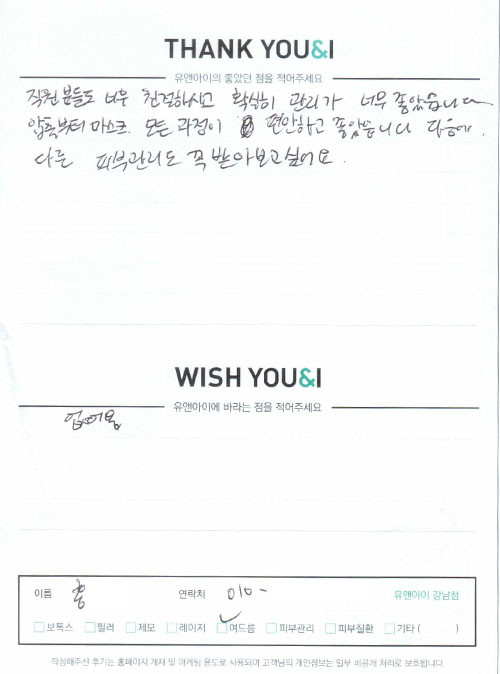 THANK YOU&I
유앤아이의 좋았던 점을 적어주세요
직원분들도 너무 친절하시고 확실히 관리가 너무 좋았습니다
압출부터 마스크 모든 과정이 편안하고 좋았습니다 다음에
다른 피부관리도 꼭 받아보고싶어요.
WISH YOU&I
유앤아이에 바라는 점을 적어주세요
없어용
이름 홍 연락처 010 - 유앤아이 강남점
보톡스 필러 제모 레이저 여드름 피부관리 피부질환 기타 ( )
작성해주신 후기는 홈페이지 게재 및 마케팅 용도로 사용되며 고객님의 개인정보는 일부 비공개 처리로 보호됩니다.